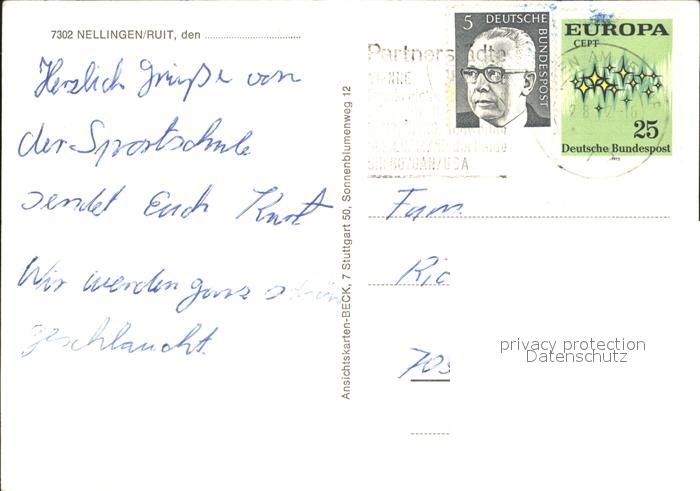 7302 NELLINGEN/RUIT, den
Herzlich Grüße von
der Sportschule
sendet Euch Kurt
Wir werden ganz schön
geschlaucht.
Ansichtskarten-BECK, 7 Stuttgart 50, Sonnenblumenweg 12
Partnerstädte
SHEBOYGAN/USA
5 DEUTSCHE BUNDESPOST
EUROPA
CEPT
25
Deutsche Bundespost
1972
Fam.
Ric
privacy protection
Datenschutz